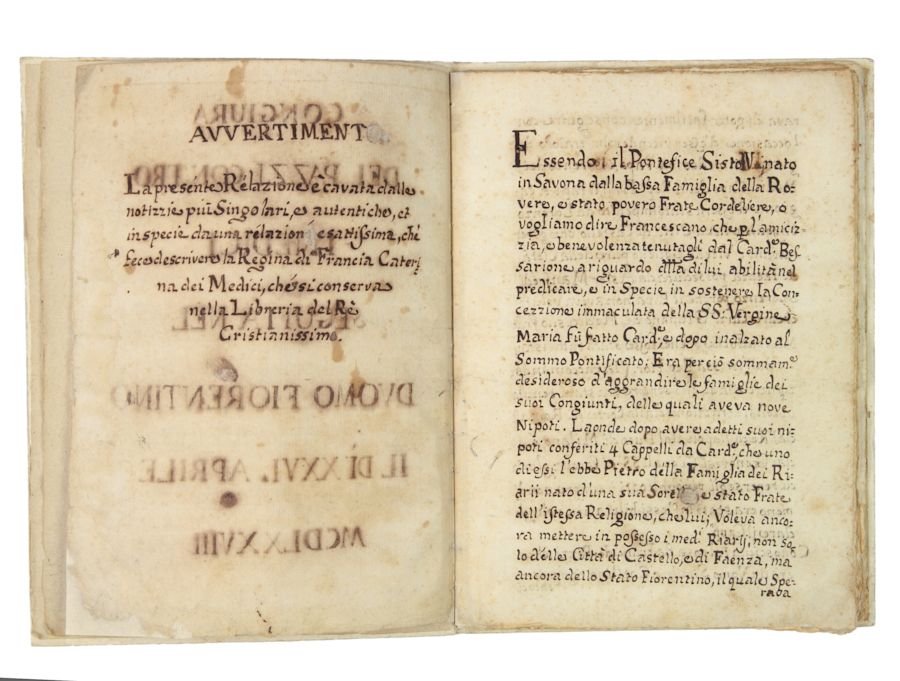 AVVERTIMENT
La presente Relazione è cavata dalle
notizzie più Singolari, e autentiche, et
in specie da una relazion esatissima, che
fece descrivere la Regina di Francia Cateri
na dei Medici, che si conserva
nella Libreria del Rè
Cristianissimo.
CONGIURA
DEI PAZZI CONTRO
SEGUITA NEL
DVOMO FIORENTINO
IL DI XXVI. APRILE
MCDLXXVIII
Essendo il Pontefice Sisto nato
in Savona dalla bassa Famiglia della Ro:
vere, e stato povero Frate Cordeliere, o
vogliamo dire Francescano, che p l'amici:
zia, e benevolenza tenutagli dal Card.e Bes
sarione a riguardo della di lui abilità nel
predicare, e in Specie in sostenere la Con:
cezzione immaculata della SS: Vergine
Maria fù fatto Card.e, e dopo inalzato al
Sommo Pontificato; Era perciò sommam.e
desideroso d'aggrandire le famiglie dei
suoi Congiunti, delle quali aveva nove
Nipoti. Laonde dopo avere a detti suoi ni:
poti conferiti 4 Cappelli da Card.e, che uno
di essi l'ebbe Pietro della Famiglia dei Ri:
arij nato d'una sua Sorell e stato Frate
dell'istessa Religione, che lui; Voleva anco:
ra mettere in possesso i med.i Riarij, non So:
lo delle Città di Castello, e di Faenza, ma
ancora dello Stato Fiorentino, il quale Spe:
raba